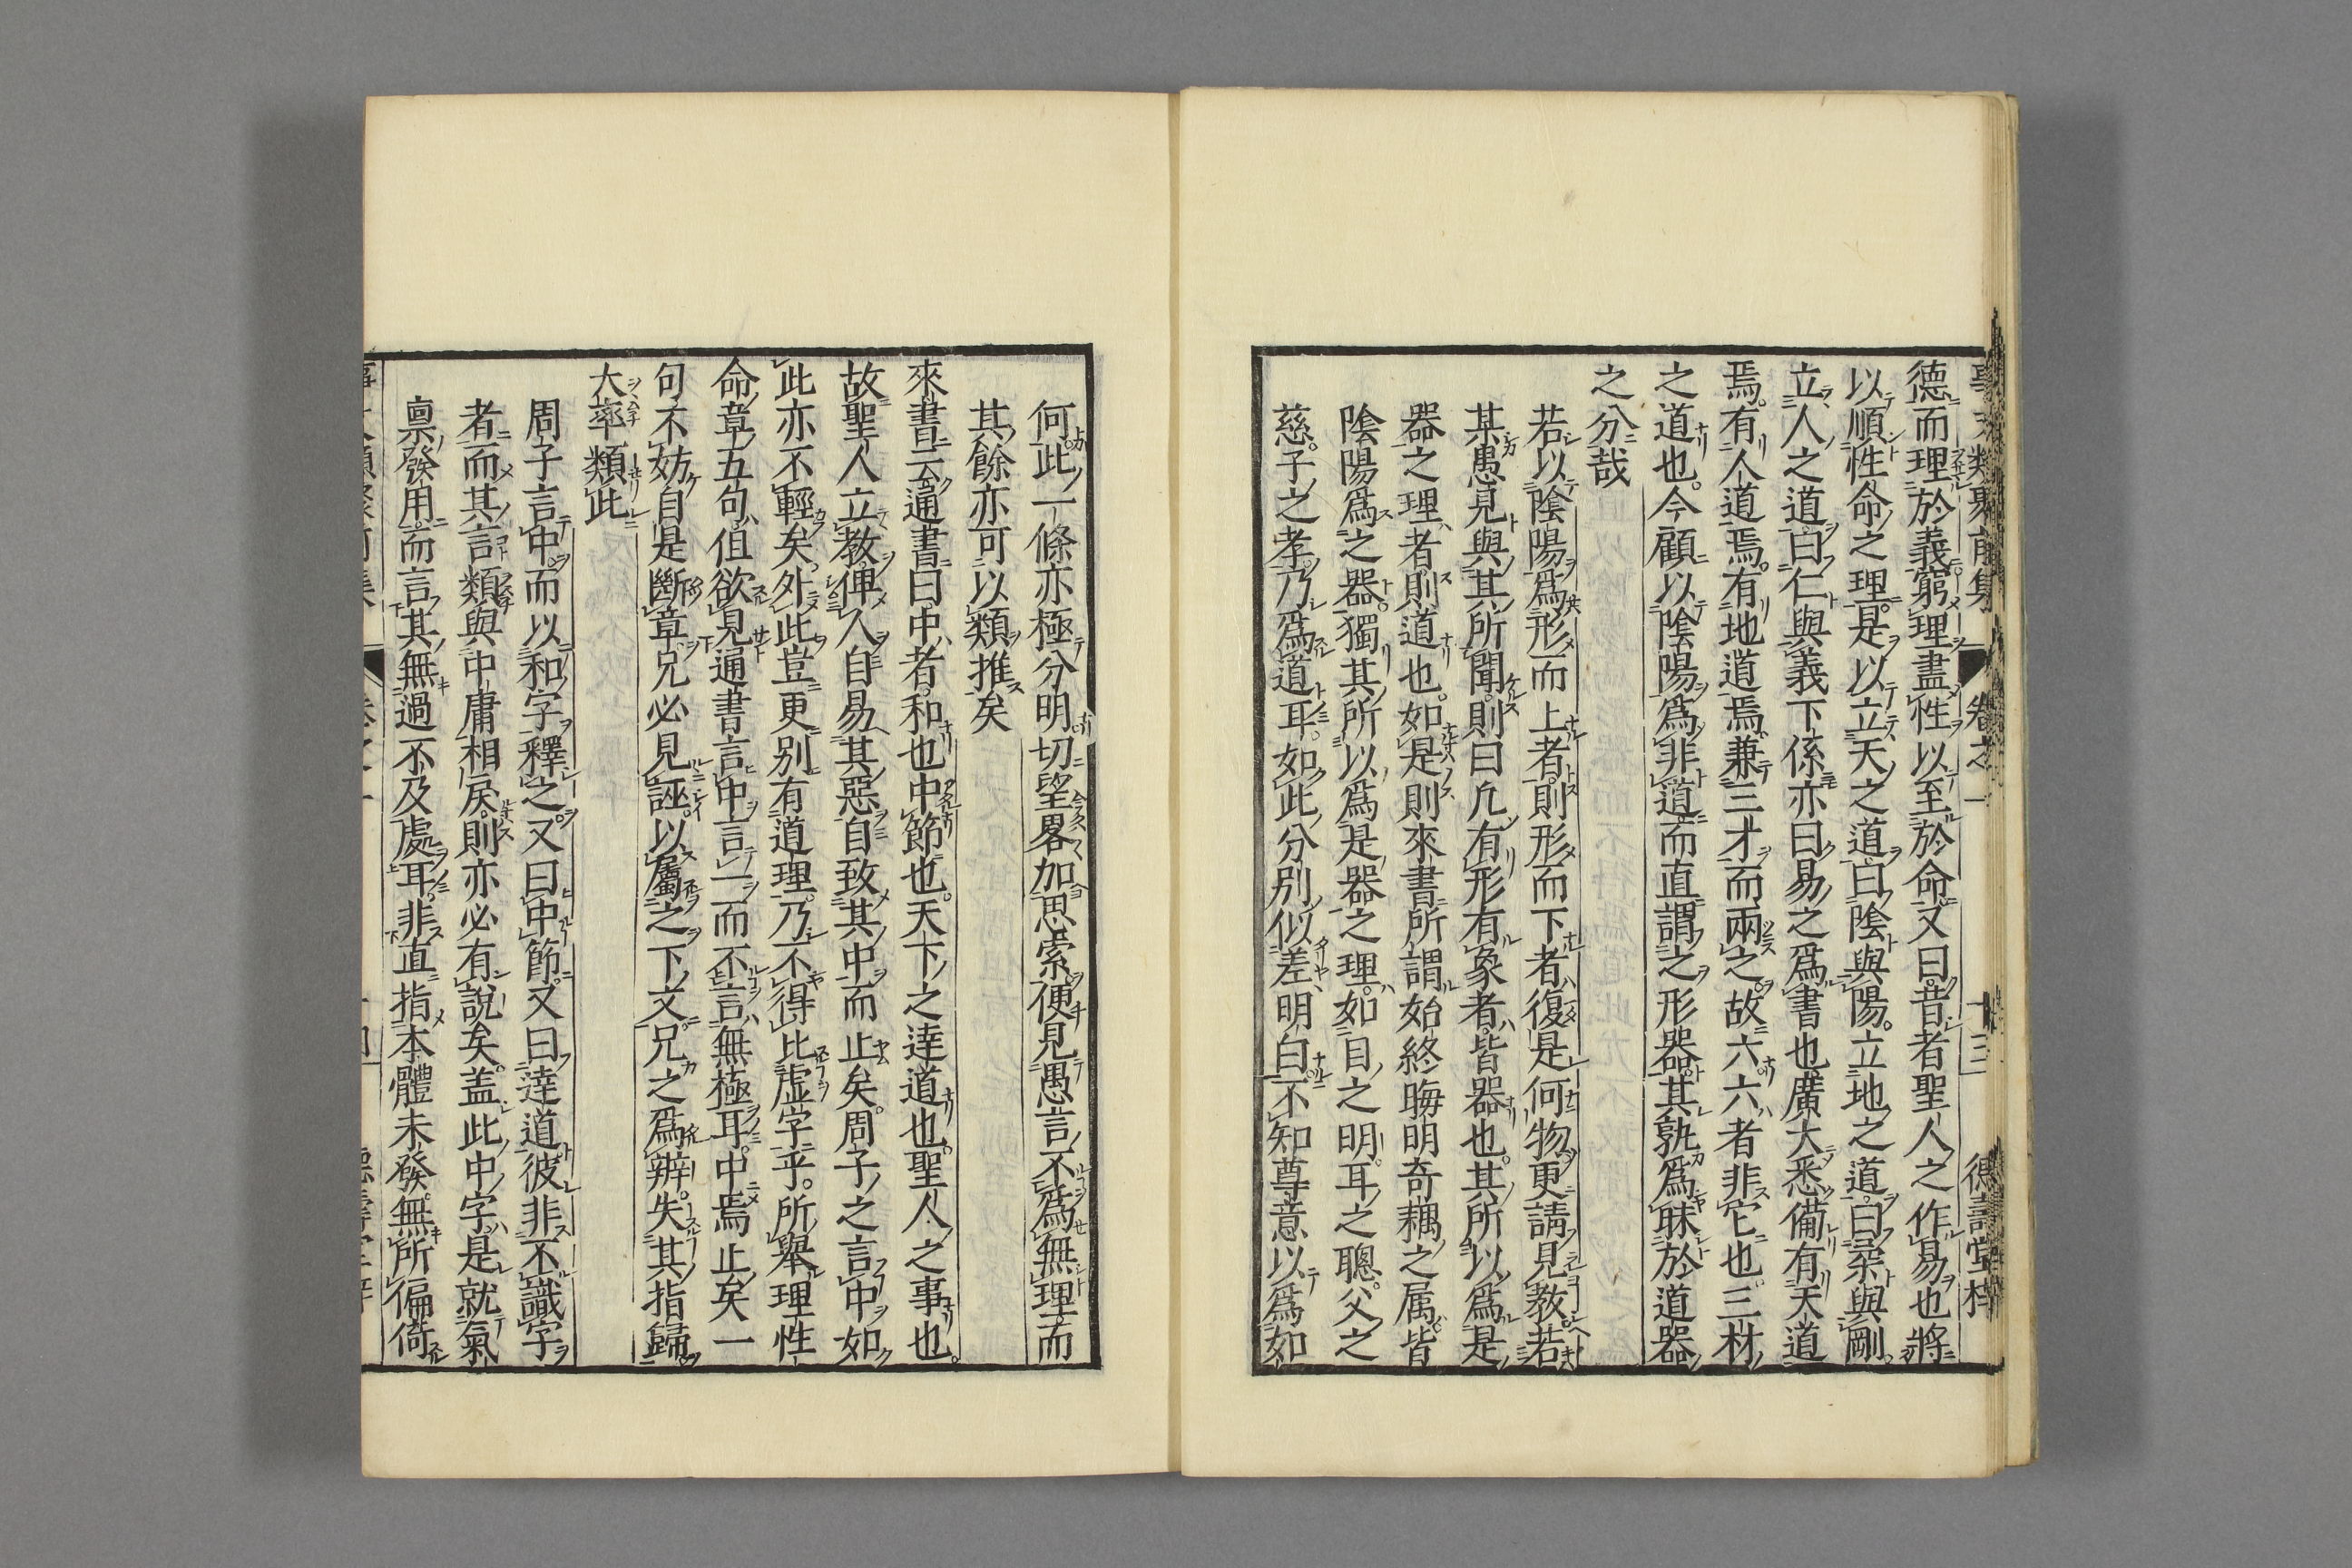 德而理於義窮理盡性以至於命又曰昔者聖人之作易也將
以順性命之理是以立天之道曰陰與陽立地之道曰柔與剛
立人之道曰仁與義下係亦曰易之爲書也廣大悉備有天道
焉有人道焉有地道焉兼三才而兩之故六六者非它也三材
之道也今顧以陰陽爲非道而直謂之形器其孰爲昧於道器
之分哉
若以陰陽爲形而上者則形而下者復是何物更請見教若
某愚見與其所聞則曰凡有形有象者皆器也其所以爲是
器之理者則道也如是則來書所謂始終晦明奇耦之属皆
陰陽爲之器獨其所以爲是器之理如目之明耳之聰父之
慈子之孝乃爲道耳如此分別似差明白不知尊意以爲如
何此一條亦極分明切望畧加思索便見愚言不爲無理而
其餘亦可以類推矣
來書云通書曰中者和也中節也天下之逹道也聖人之事也
故聖人立教俾人自易其惡自致其中而止矣周子之言中如
此亦不輕矣外此豈更别有道理乃不得比虚字乎所舉理性
命章五句但欲見通書言中言一而不言無極耳中焉止矣一
句不妨自是斷章兄必見誣以屬之下文兄之爲辨失其指歸
大率類此
周子言中而以和字釋之又曰中節又曰逹道彼非不識字
者而其言類與中庸相戾則亦必有說矣盖此中字是就氣
禀發用而言其無過不及處耳非直指本體未發無所偏倚